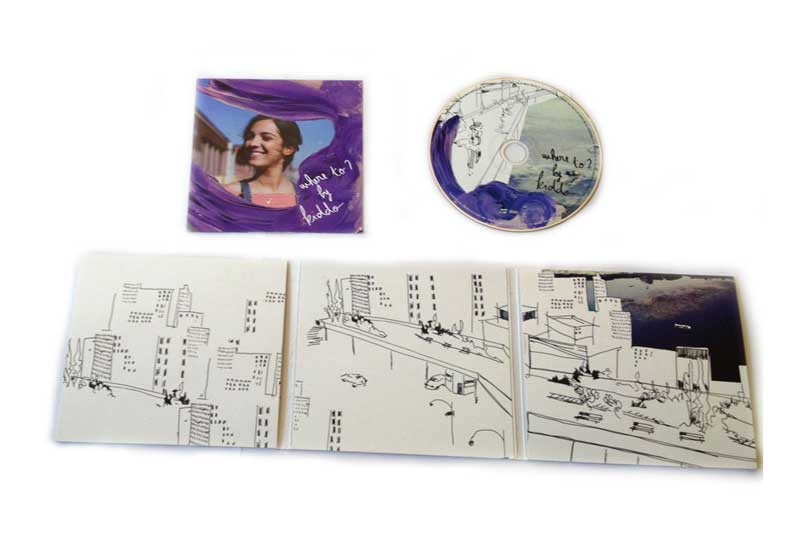 where to?
by
kiddo
where to?
by
kiddo